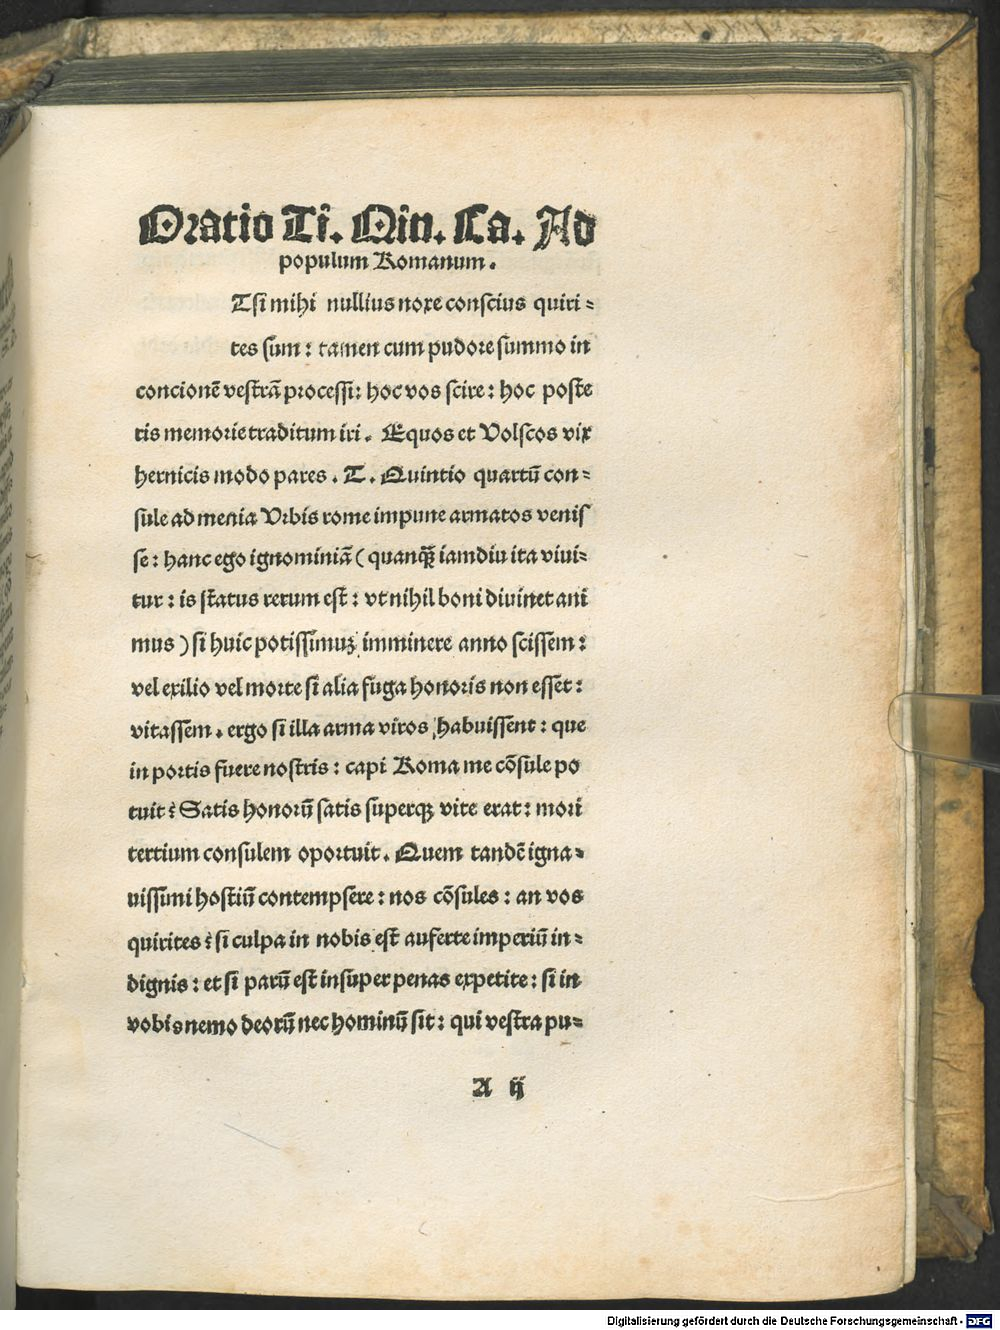 Oratio Ti. Qin. Ca. Ad
populum Romanum.
Tsi mihi nullius noxe conscius quiri-
tes sum: tamen cum pudore summo in
concionē vestrā processi: hoc vos scire: hoc poste
ris memorie traditum iri. Equos et Volscos vix
hernicis modo pares. T. Quintio quartū con-
sule ad menia Vrbis rome impune armatos venis
se: hanc ego ignominiā (quanqȝ iamdiu ita viui-
tur: is status rerum est: vt nihil boni diuinet ani
mus) si huic potissimuȝ imminere anno scissem:
vel exilio vel morte si alia fuga honoris non esset:
vitassem. ergo si illa arma viros habuissent: que
in portis fuere nostris: capi Roma me cōsule po
tuit: Satis honorū satis superqȝ vite erat: mori
tertium consulem oportuit. Quem tandē igna-
uissimi hostiū contempsere: nos cōsules: an vos
quirites: si culpa in nobis est auferte imperiū in-
dignis: et si parū est insuper penas expetite: si in
vobis nemo deorū nec hominū sit: qui vestra pu-
A ij
Digitalisierung gefördert durch die Deutsche Forschungsgemeinschaft - DFG